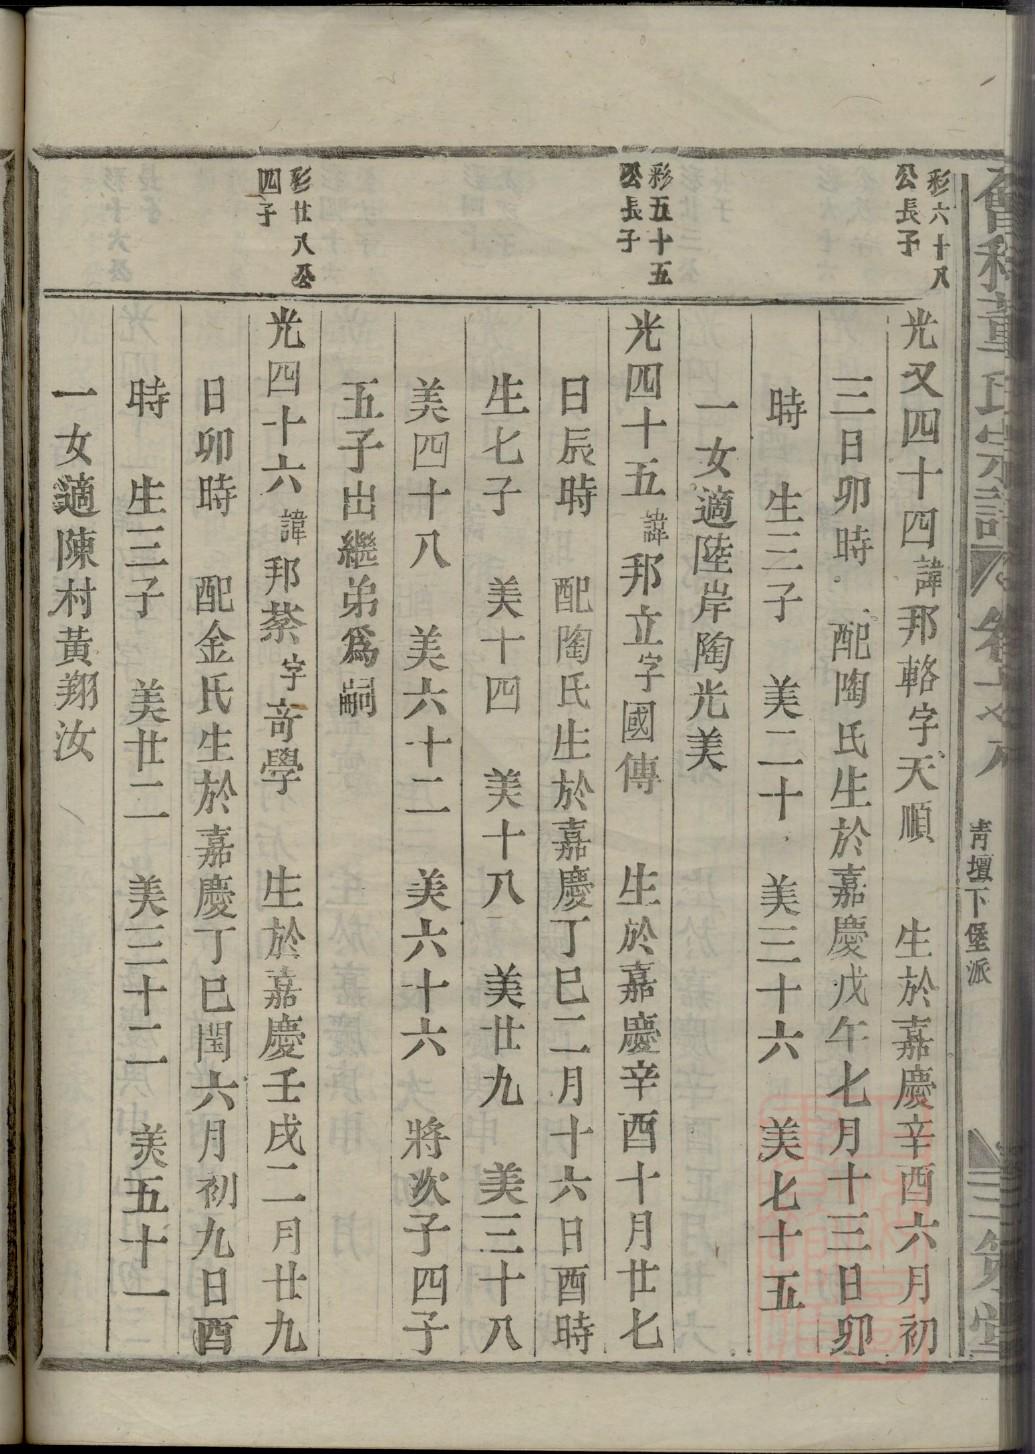 童氏宗譜
青壇下堡派
彩六十八
公長子
光又四十四諱邦輅字天順 生於嘉慶辛酉六月初
三日卯時 配陶氏生於嘉慶戊午七月十三日卯
時 生三子 美二十 美三十六 美七十五
一女適陸岸陶光美
彩五十五
公長子
光四十五諱邦立字國傳 生於嘉慶辛酉十月廿七
日辰時 配陶氏生於嘉慶丁巳二月十六日酉時
生七子 美十四 美十八 美廿九 美三十八
美四十八 美六十二 美六十六 將次子四子
五子出繼弟爲嗣
彩廿八公
四子
光四十六諱邦棻字奇學 生於嘉慶壬戌二月廿九
日卯時 配金氏生於嘉慶丁巳閏六月初九日酉
時 生三子 美廿二 美三十二 美五十一
一女適陳村黃翔汝